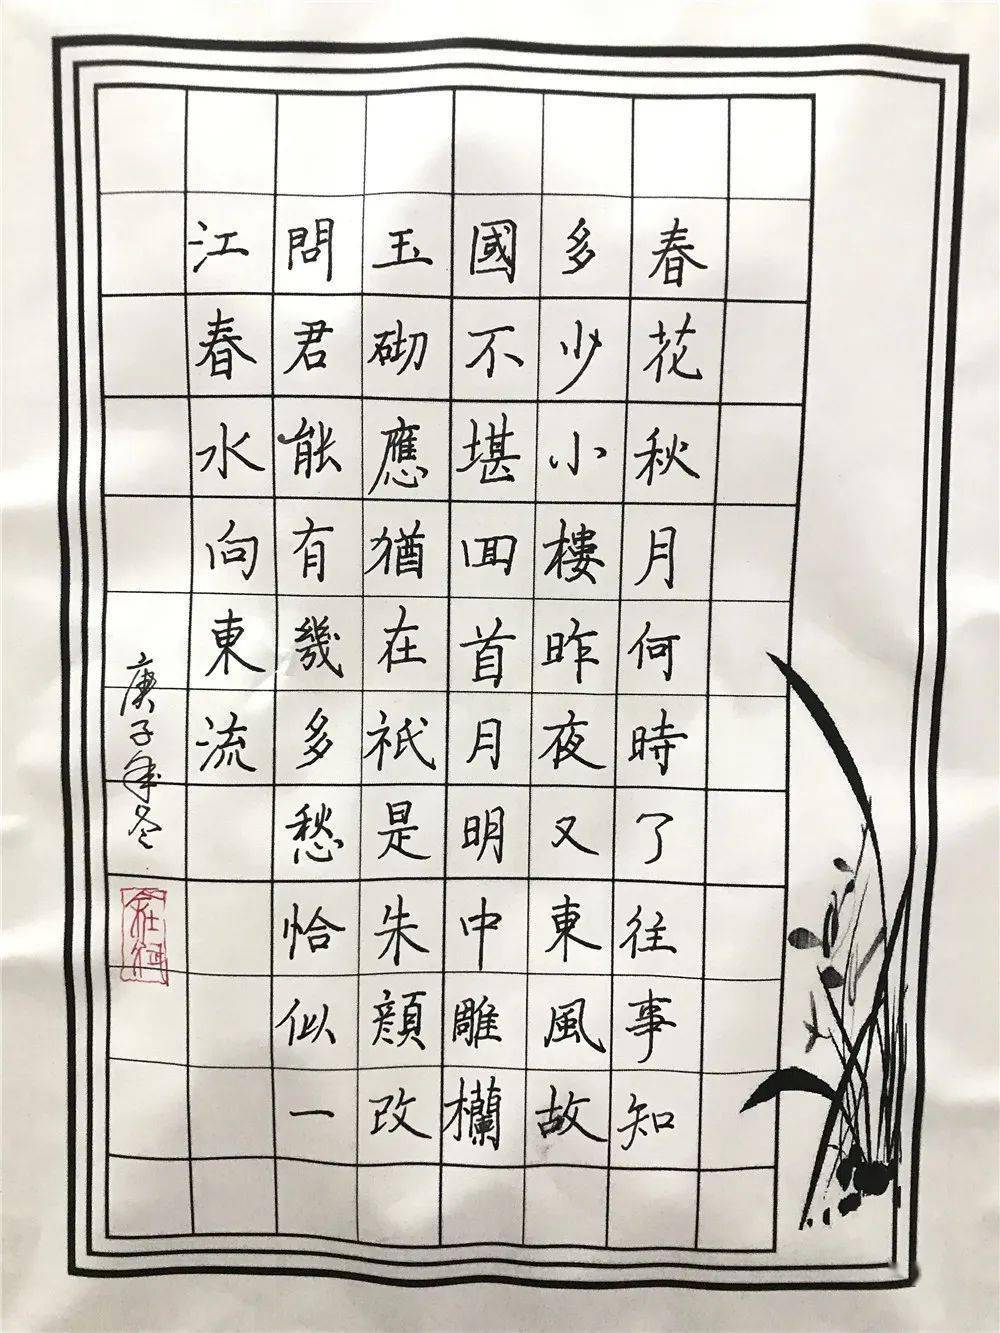 春花秋月何時了往事知
多少小樓昨夜又東風故
國不堪回首月明中雕欄
玉砌應猶在祇是朱顔改
問君能有幾多愁恰似一
江春水向東流
庚子年冬